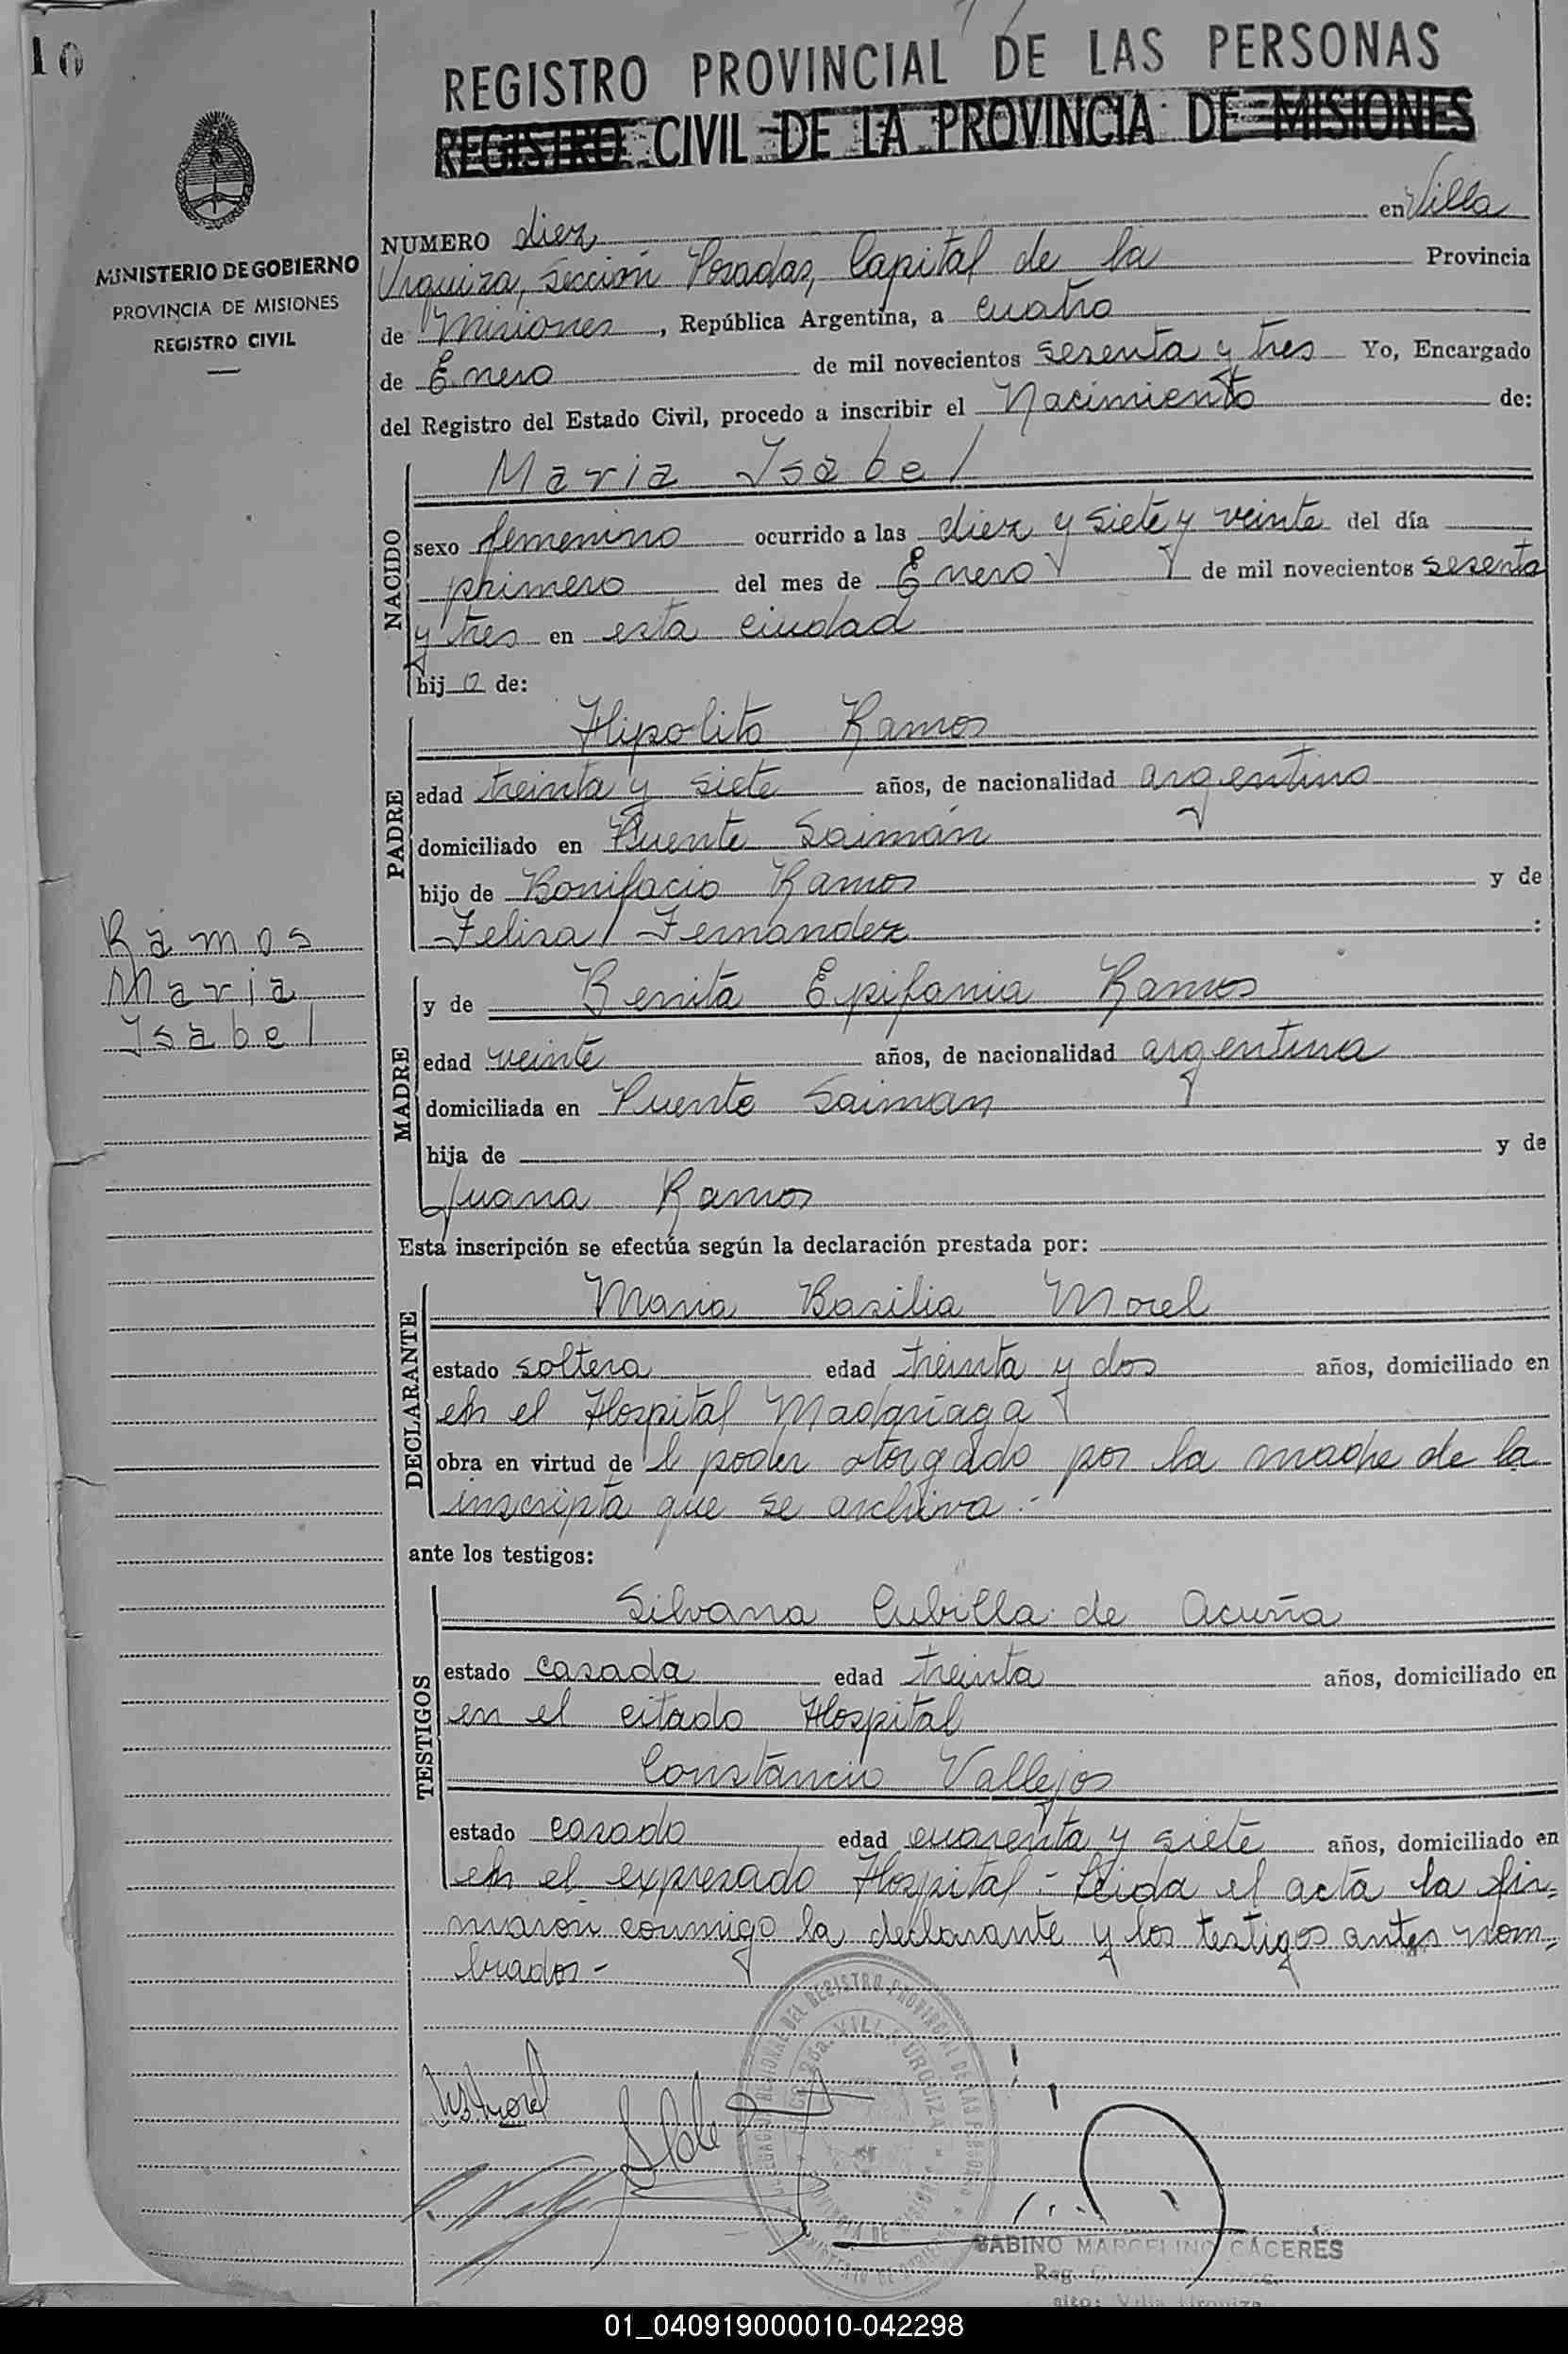 10
REGISTRO PROVINCIAL DE LAS PERSONAS
REGISTRO CIVIL DE LA PROVINCIA DE MISIONES
MINISTERIO DE GOBIERNO
PROVINCIA DE MISIONES
REGISTRO CIVIL
NUMERO diez en Villa
Urquiza, Sección Posadas, Capital de la Provincia
de Misiones, República Argentina, a cuatro
de Enero de mil novecientos sesenta y tres Yo, Encargado
del Registro del Estado Civil, procedo a inscribir el Nacimiento de:
NACIDO
Maria Isabel
sexo femenino ocurrido a las diez y siete y veinte del día
primero del mes de Enero de mil novecientos sesenta
y tres en esta ciudad
hija de:
PADRE
Hipolito Ramos
edad treinta y siete años, de nacionalidad argentino
domiciliado en Puente Saimán
hijo de Bonifacio Ramos y de
Felisa Fernandez :
Ramos
Maria
Isabel
MADRE
y de Benita Epifania Ramos
edad veinte años, de nacionalidad argentina
domiciliada en Puente Saiman
hija de y de
Juana Ramos
Esta inscripción se efectúa según la declaración prestada por:
DECLARANTE
Maria Basilia Morel
estado soltera edad treinta y dos años, domiciliado en
en el Hospital Madariaga
obra en virtud de l poder otorgado por la madre de la
inscripta que se archiva.-
ante los testigos:
TESTIGOS
Silvana Cubilla de Acuña
estado casada edad treinta años, domiciliado en
en el citado Hospital
Constancio Vallejos
estado casado edad cuarenta y siete años, domiciliado en
en el expresado Hospital - Leida el acta la fir=
maron conmigo la declarante y los testigos antes nom=
brados-
SABINO MARCELINO CÁCERES
01_040919000010-042298